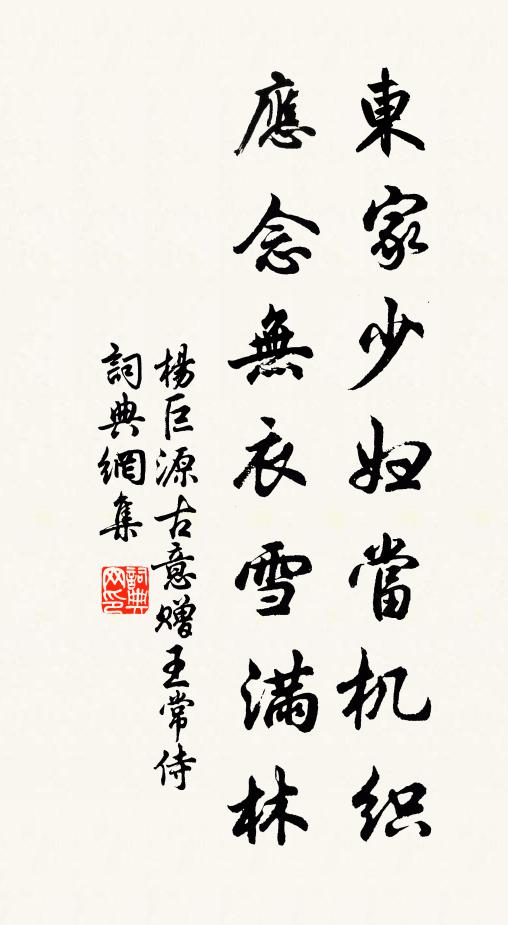 東家少妇當机织
應念無衣雪满林
楊巨源古意赠王常侍
詞典網集
詞典网印